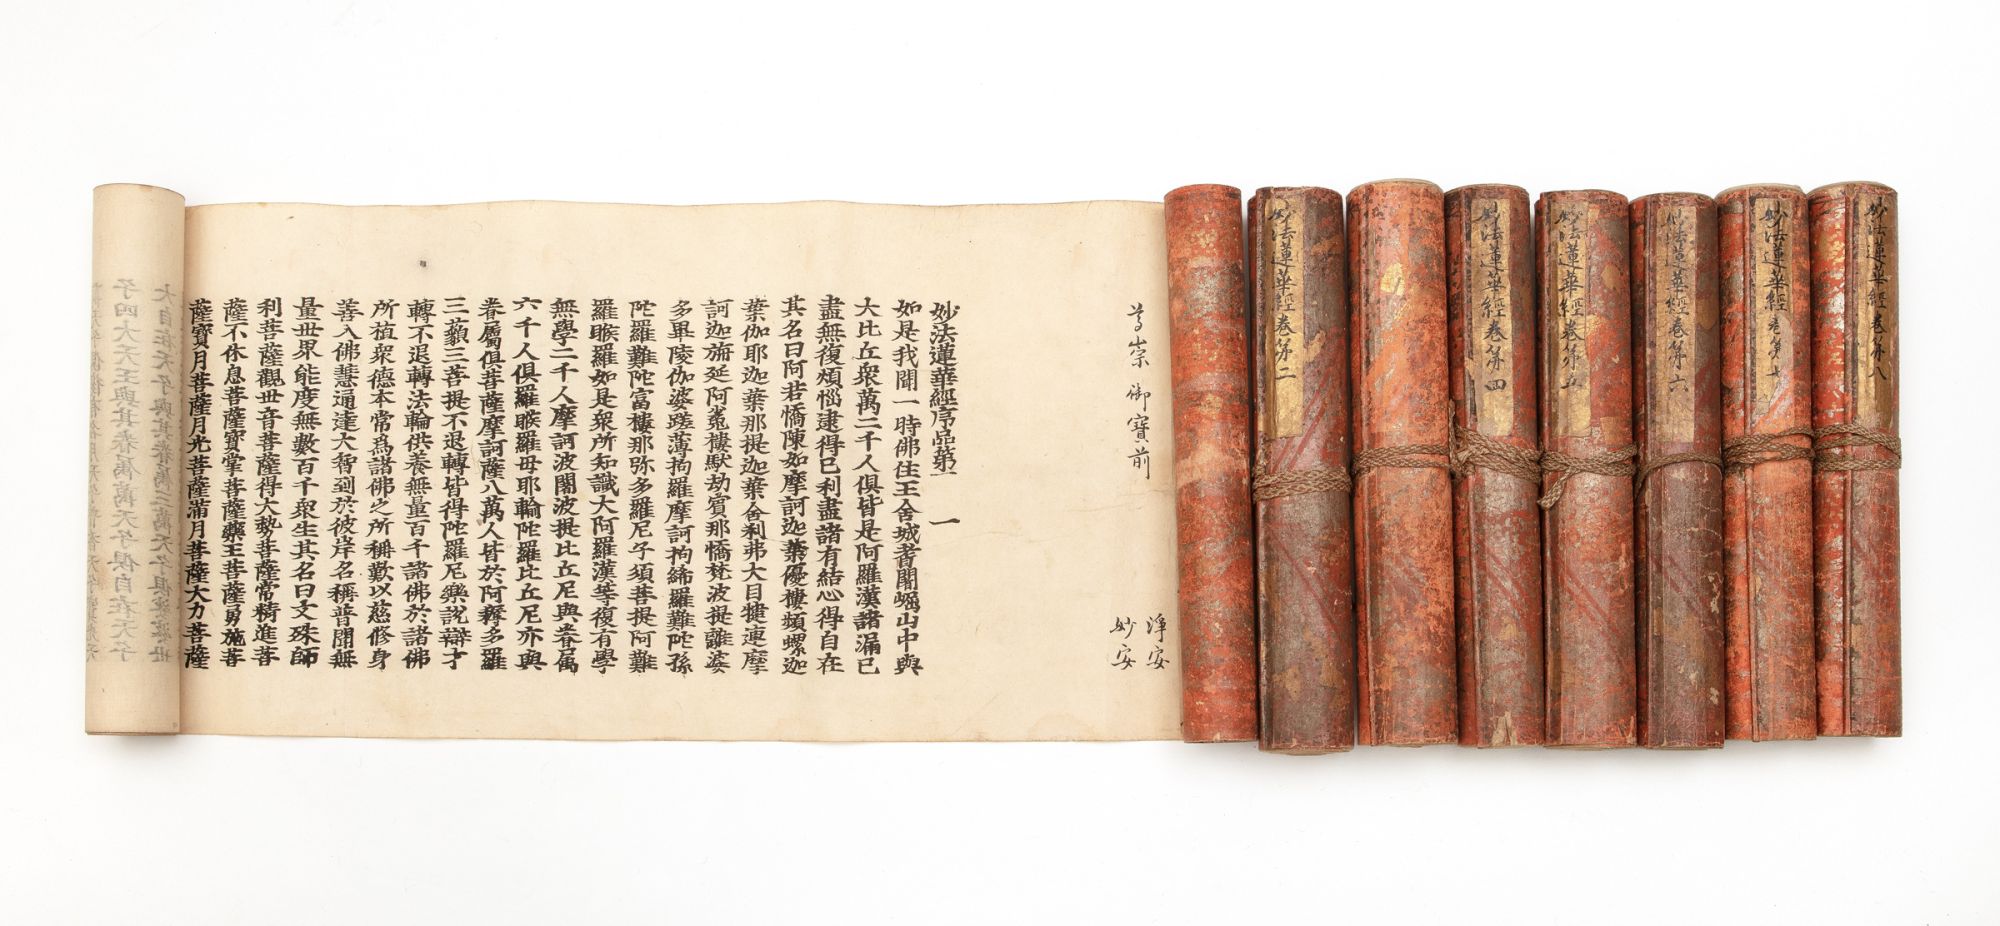 妙法蓮華經卷第八
妙法蓮華經卷第七
妙法蓮華經卷第六
妙法蓮華經卷第五
妙法蓮華經卷第四
妙法蓮華經卷第二
崇御寳前
淨安
妙安
妙法蓮華經序品第一 一
如是我聞一時佛住王舍城耆闍崛山中與
大比丘衆萬二千人俱皆是阿羅漢諸漏已
盡無復煩惱逮得已利盡諸有結心得自在
其名曰阿若憍陳如摩訶迦葉優樓頻螺迦
葉伽耶迦葉那提迦葉舍利弗大目揵連摩
訶迦旃延阿㝹樓馱劫賓那憍梵波提離婆
多畢陵伽婆蹉薄拘羅摩訶拘絺羅難陀孫
陀羅難陀富樓那弥多羅尼子須菩提阿難
羅睺羅如是衆所知識大阿羅漢等復有學
無學二千人摩訶波闍波提比丘尼與眷属
六千人俱羅睺羅母耶輸陀羅比丘尼亦與
眷屬俱菩薩摩訶薩八萬人皆於阿耨多羅
三藐三菩提不退轉皆得陀羅尼樂說辯才
轉不退轉法輪供養無量百千諸佛於諸佛
所植衆德本常爲諸佛之所稱歎以慈修身
善入佛慧通達大智到於彼岸名稱普聞無
量世界能度無數百千衆生其名曰文殊師
利菩薩觀世音菩薩得大勢菩薩常精進菩
薩不休息菩薩寶掌菩薩藥王菩薩勇施菩
薩寶月菩薩月光菩薩滿月菩薩大力菩薩
大自在天子與其眷屬三萬天子俱娑婆世
子四大天王與其眷屬萬天子俱自在天子